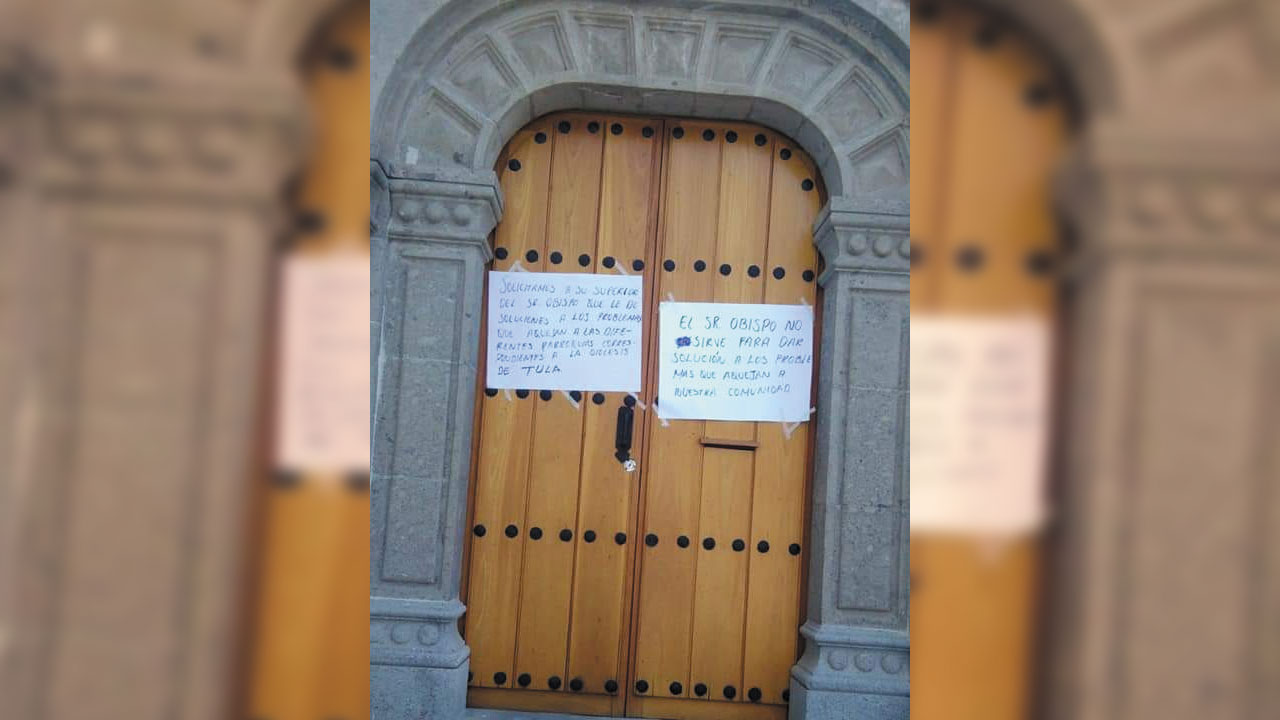 SOLICITAMOS A SU SUPERIOR
DEL SR. OBISPO QUE LE DE
SOLUCIONES A LOS PROBLEMAS
QUE AQUEJAN A LAS DIFE-
RENTES PARROQUIAS CORRES-
PONDIENTES A LA DIOCESIS
DE TULA
EL SR. OBISPO NO
SIRVE PARA DAR
SOLUCIÓN A LOS PROBLE
MAS QUE AQUEJAN A
NUESTRA COMUNIDAD